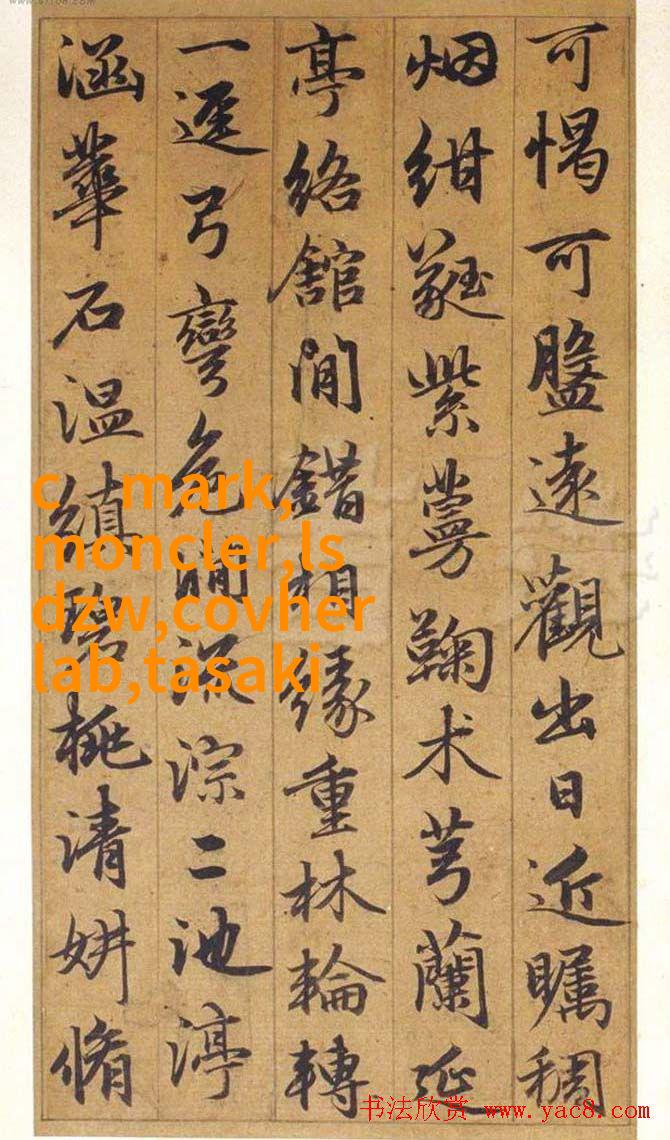 可憩可盤遠觀出日近矚稠
烟紺蕤紫蔓鞠术芎蘭延
亭络館閒錯相緣重林輪轉
一逕弓彎危澗流淙二池渟
涵華石温縝碧桃清妍脩
c、mark,
moncler,ls
dzw,covher
lab,tasaki
书法欣赏 www.yac8.com